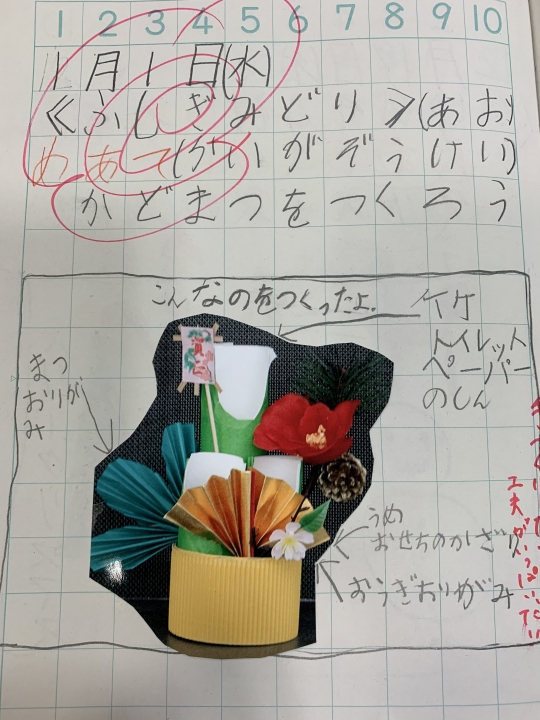 1 2 3 4 5 6 7 8 9 10
1月1日(水)
≪ふしぎみどり≫(あお)
めあて(かいがぞうけい)
かどまつをつくろう
こんなのをつくったよ。
竹
トイレット
ペーパー
のしん
まつ
おりが
み
うめ
おせちのかざり
おうぎおりがみ
工夫がいっぱいだね